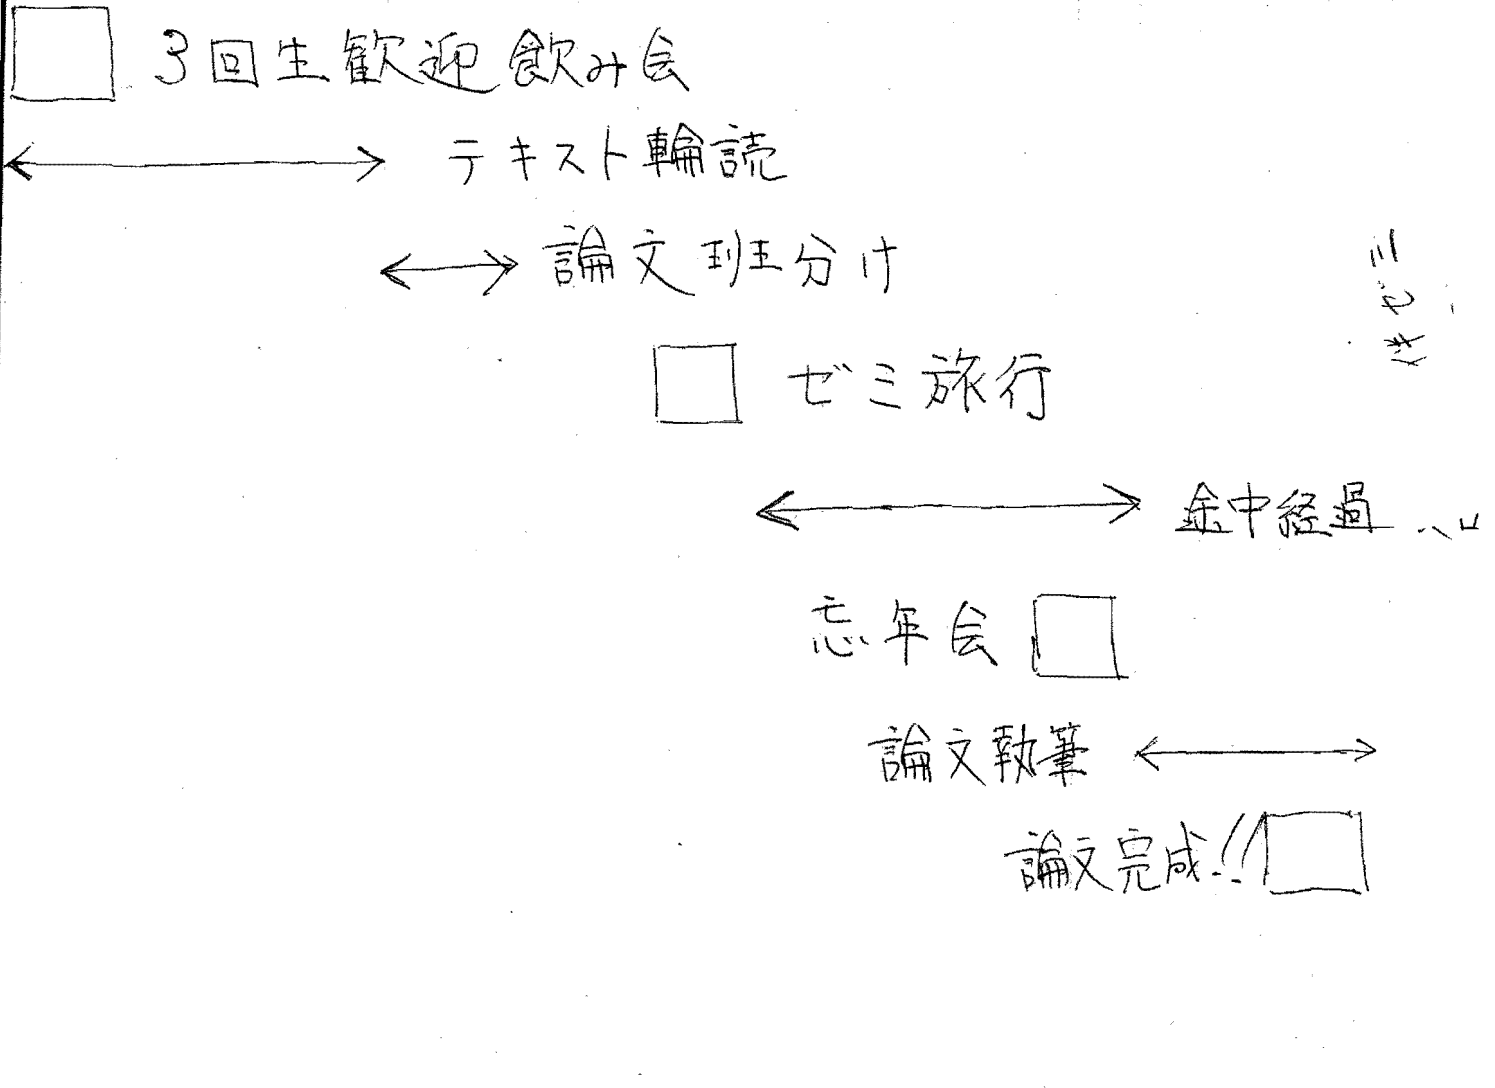 3回生歓迎飲み会
テキスト輪読
論文班分け
ゼミ旅行
中経過
忘年会
論文執筆
論文完成!!